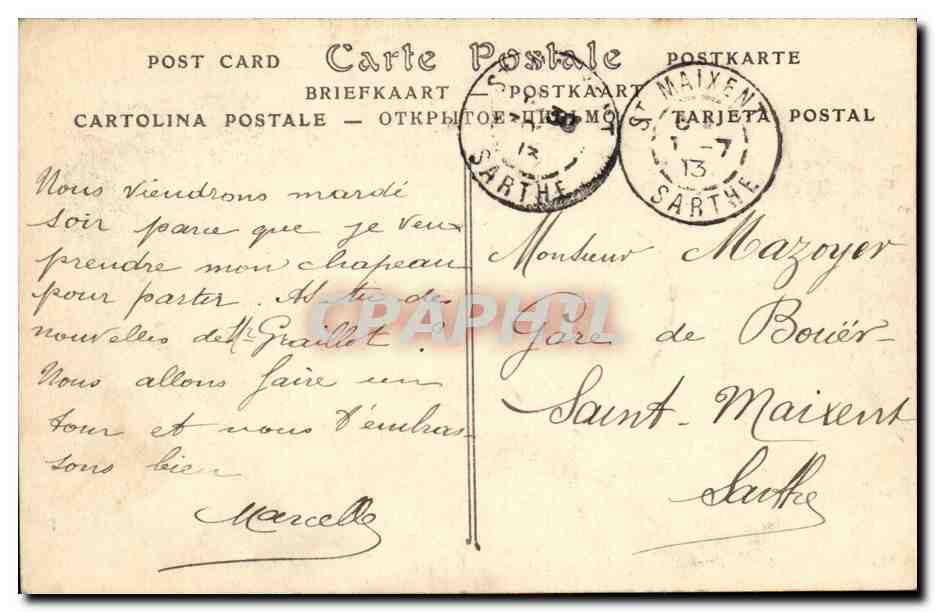 POST CARD Carte Postale POSTKARTE
BRIEFKAART — POSTKAART
CARTOLINA POSTALE — ОТКРЫТОЕ ПИСЬМО TARJETA POSTAL
SARTHE
13
ST MAIXENT
1 -7
13
SARTHE
Nous viendrons mardi
soir parce que je veux
prendre mon chapeau
pour partir. As-tu de
nouvelles de Mr Graillot ?
Nous allons faire un
tour et nous t'embras-
sons bien
Marcelle
Monsieur Mazoyer
Gare de Bouër-
Saint-Maixent
Sarthe
CPAPHIL